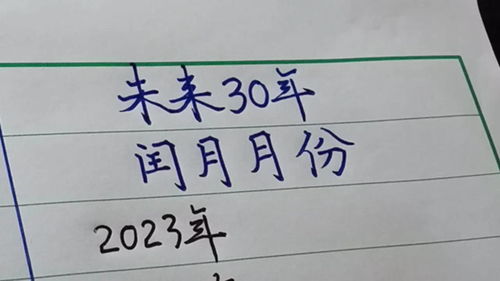 未来30年
闰月月份
2023年